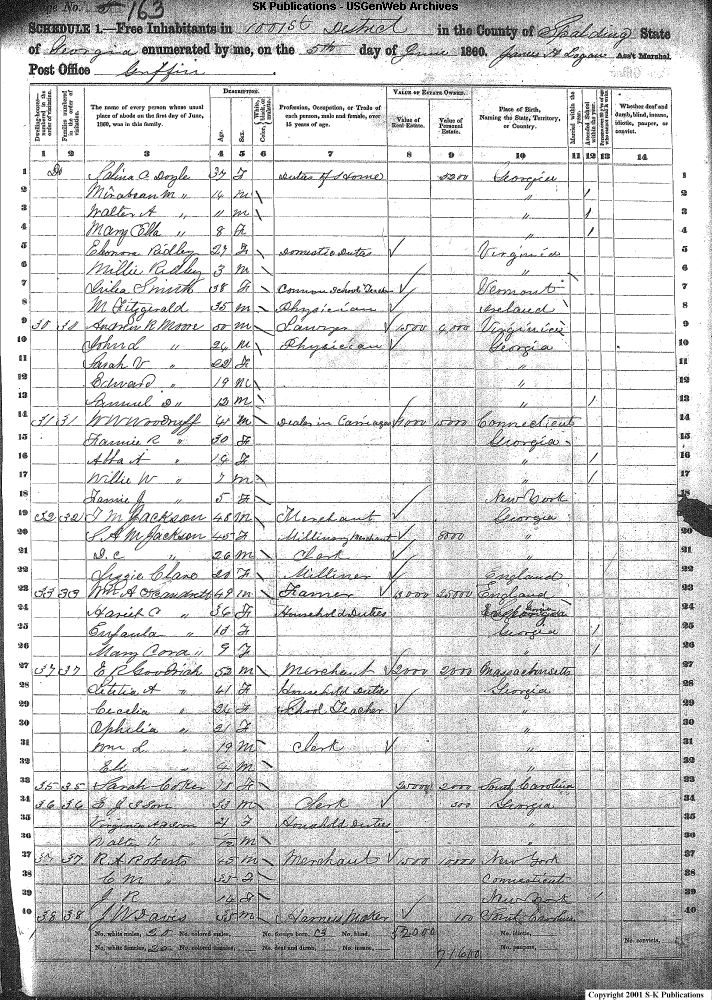 SK Publications - USGenWeb Archives
Page No. 163
SCHEDULE 1.—Free Inhabitants in 1001st District in the County of Spalding State
of Georgia enumerated by me, on the 5th day of June 1860. Ass't Marshal.
Post Office Griffin
Dwelling-houses—numbered in the order of visitation.
Families numbered in the order of visitation.
The name of every person whose usual place of abode on the first day of June, 1860, was in this family.
DESCRIPTION.
Age.
Sex.
Color, White, black, or mulatto.
Profession, Occupation, or Trade of each person, male and female, over 15 years of age.
VALUE OF ESTATE OWNED.
Value of Real Estate.
Value of Personal Estate.
Place of Birth, Naming the State, Territory, or Country.
Married within the year.
Attended School within the year.
Whether deaf and dumb, blind, insane, idiotic, pauper, or convict.
1 2 3 4 5 6 7 8 9 10 11 12 13 14
1 Do Salina A Doyle 37 F Duties of Home 5200 Georgia 1
2 Mirabeau M " 14 m \ " / 2
3 Walter A " 11 m \ " / 3
4 Mary Ella " 8 F " / 4
5 Ridley 27 F Domestic Duties Virginia 5
6 Millie Ridley 3 m \ " 6
7 Smith 38 F Common School Teacher Vermont 7
8 M Fitzgerald 35 m Physician Ireland 8
9 30 30 Andrew R Moore 50 m Lawyer 1500 6,000 Virginia 9
10 John L " 26 m Physician Georgia 10
11 Sarah V " 22 F " 11
12 Edward " 19 m " 12
13 Samuel D " 12 m " / 13
14 31 31 W W Woodruff 41 m Dealer in Carriages 15000 Connecticut 14
15 Fannie R " 30 F Georgia 15
16 Abba A " 14 F " / 16
17 Willie W " 7 m " / 17
18 Fannie J " 5 F New York 18
19 32 32 T M Jackson 48 m Merchant Georgia 19
20 S. A M Jackson 45 F Millinery Merchant 8000 " 20
21 D. C " 26 m Clerk " 21
22 Lizzie Clare 20 F Milliner England 22
23 33 33 Wm A 49 m Farmer 25000 England 23
24 Hariet C " 36 F Household Duties Georgia 24
25 Eufaula " 13 F Georgia / 25
26 Mary Cora " 9 F " / 26
27 37 37 E P Goodrich 52 m Merchant 2000 2000 Massachusetts 27
28 A " 41 F Household Duties Georgia 28
29 Cecelia " 24 F School Teacher " 29
30 Ophelia " 21 F " 30
31 Wm L " 19 m Clerk " 31
32 Eli " 4 m " 32
33 35 35 Sarah Coker 78 F 2000 South Carolina 33
34 36 36 E J Ison 33 m Clerk 500 Georgia 34
35 Virginia 21 F Household Duties " 35
36 Walter T " m " 36
37 37 37 R. A Roberts 45 m Merchant 1500 10000 New York 37
38 E M " 35 F Connecticut 38
39 J R " 14 New York / 39
40 38 38 J W Davis 35 m Harness Maker 100 South Carolina 40
No. white males, 20 No. colored males, No. foreign born, 03 No. blind, 52000 No. idiotic, No. convicts,
No. white females, 20 No. colored females, No. deaf and dumb, No. insane, 71600 No. paupers,
Copyright 2001 S-K Publications